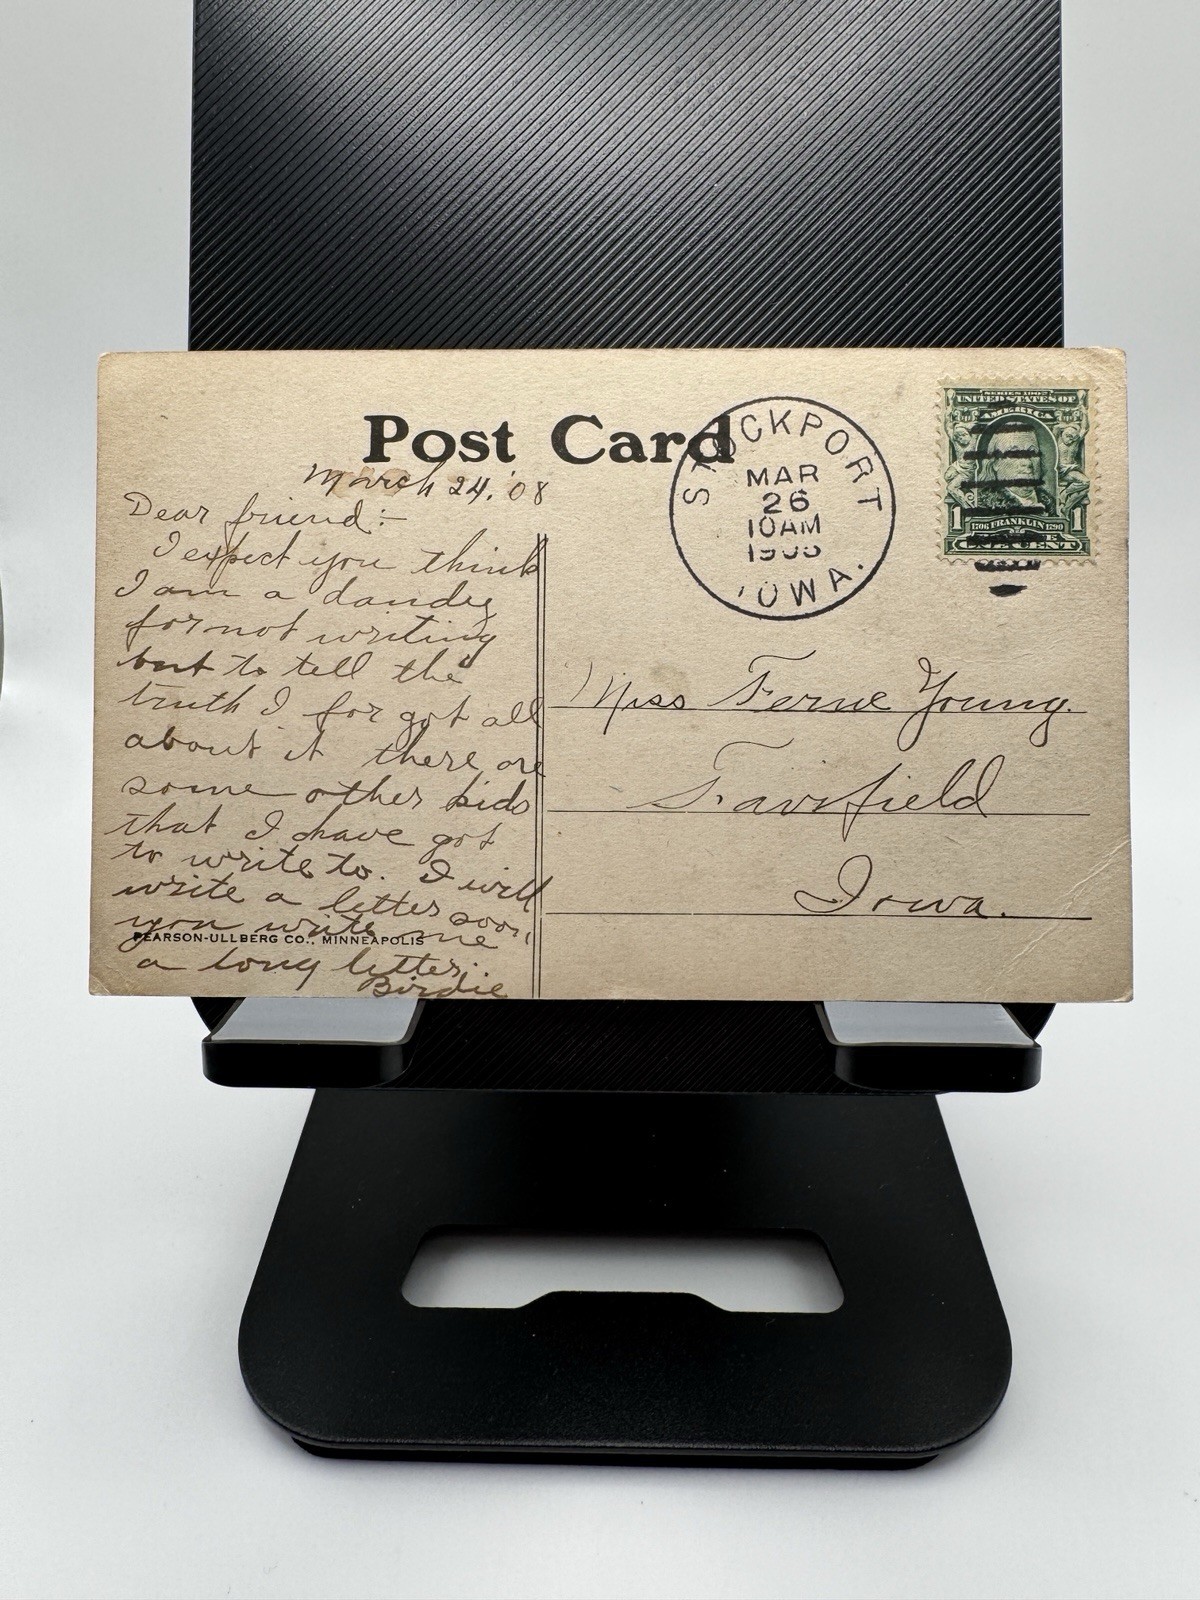 Post Card
March 24, '08
Dear friend:-
I expect you think
I am a dandy
for not writing
but to tell the
truth I for got all
about it there are
some other kids
that I have got
to write to. I will
write a letter soon,
you write me
a long letter.
Birdie
PEARSON-ULLBERG CO., MINNEAPOLIS
STOCKPORT
MAR
26
10AM
IOWA.
SERIES 1902
UNITED STATES OF
AMERICA
1 1706 FRANKLIN 1790 1
ONE CENT
Miss Ferne Young.
Fairfield
Iowa.